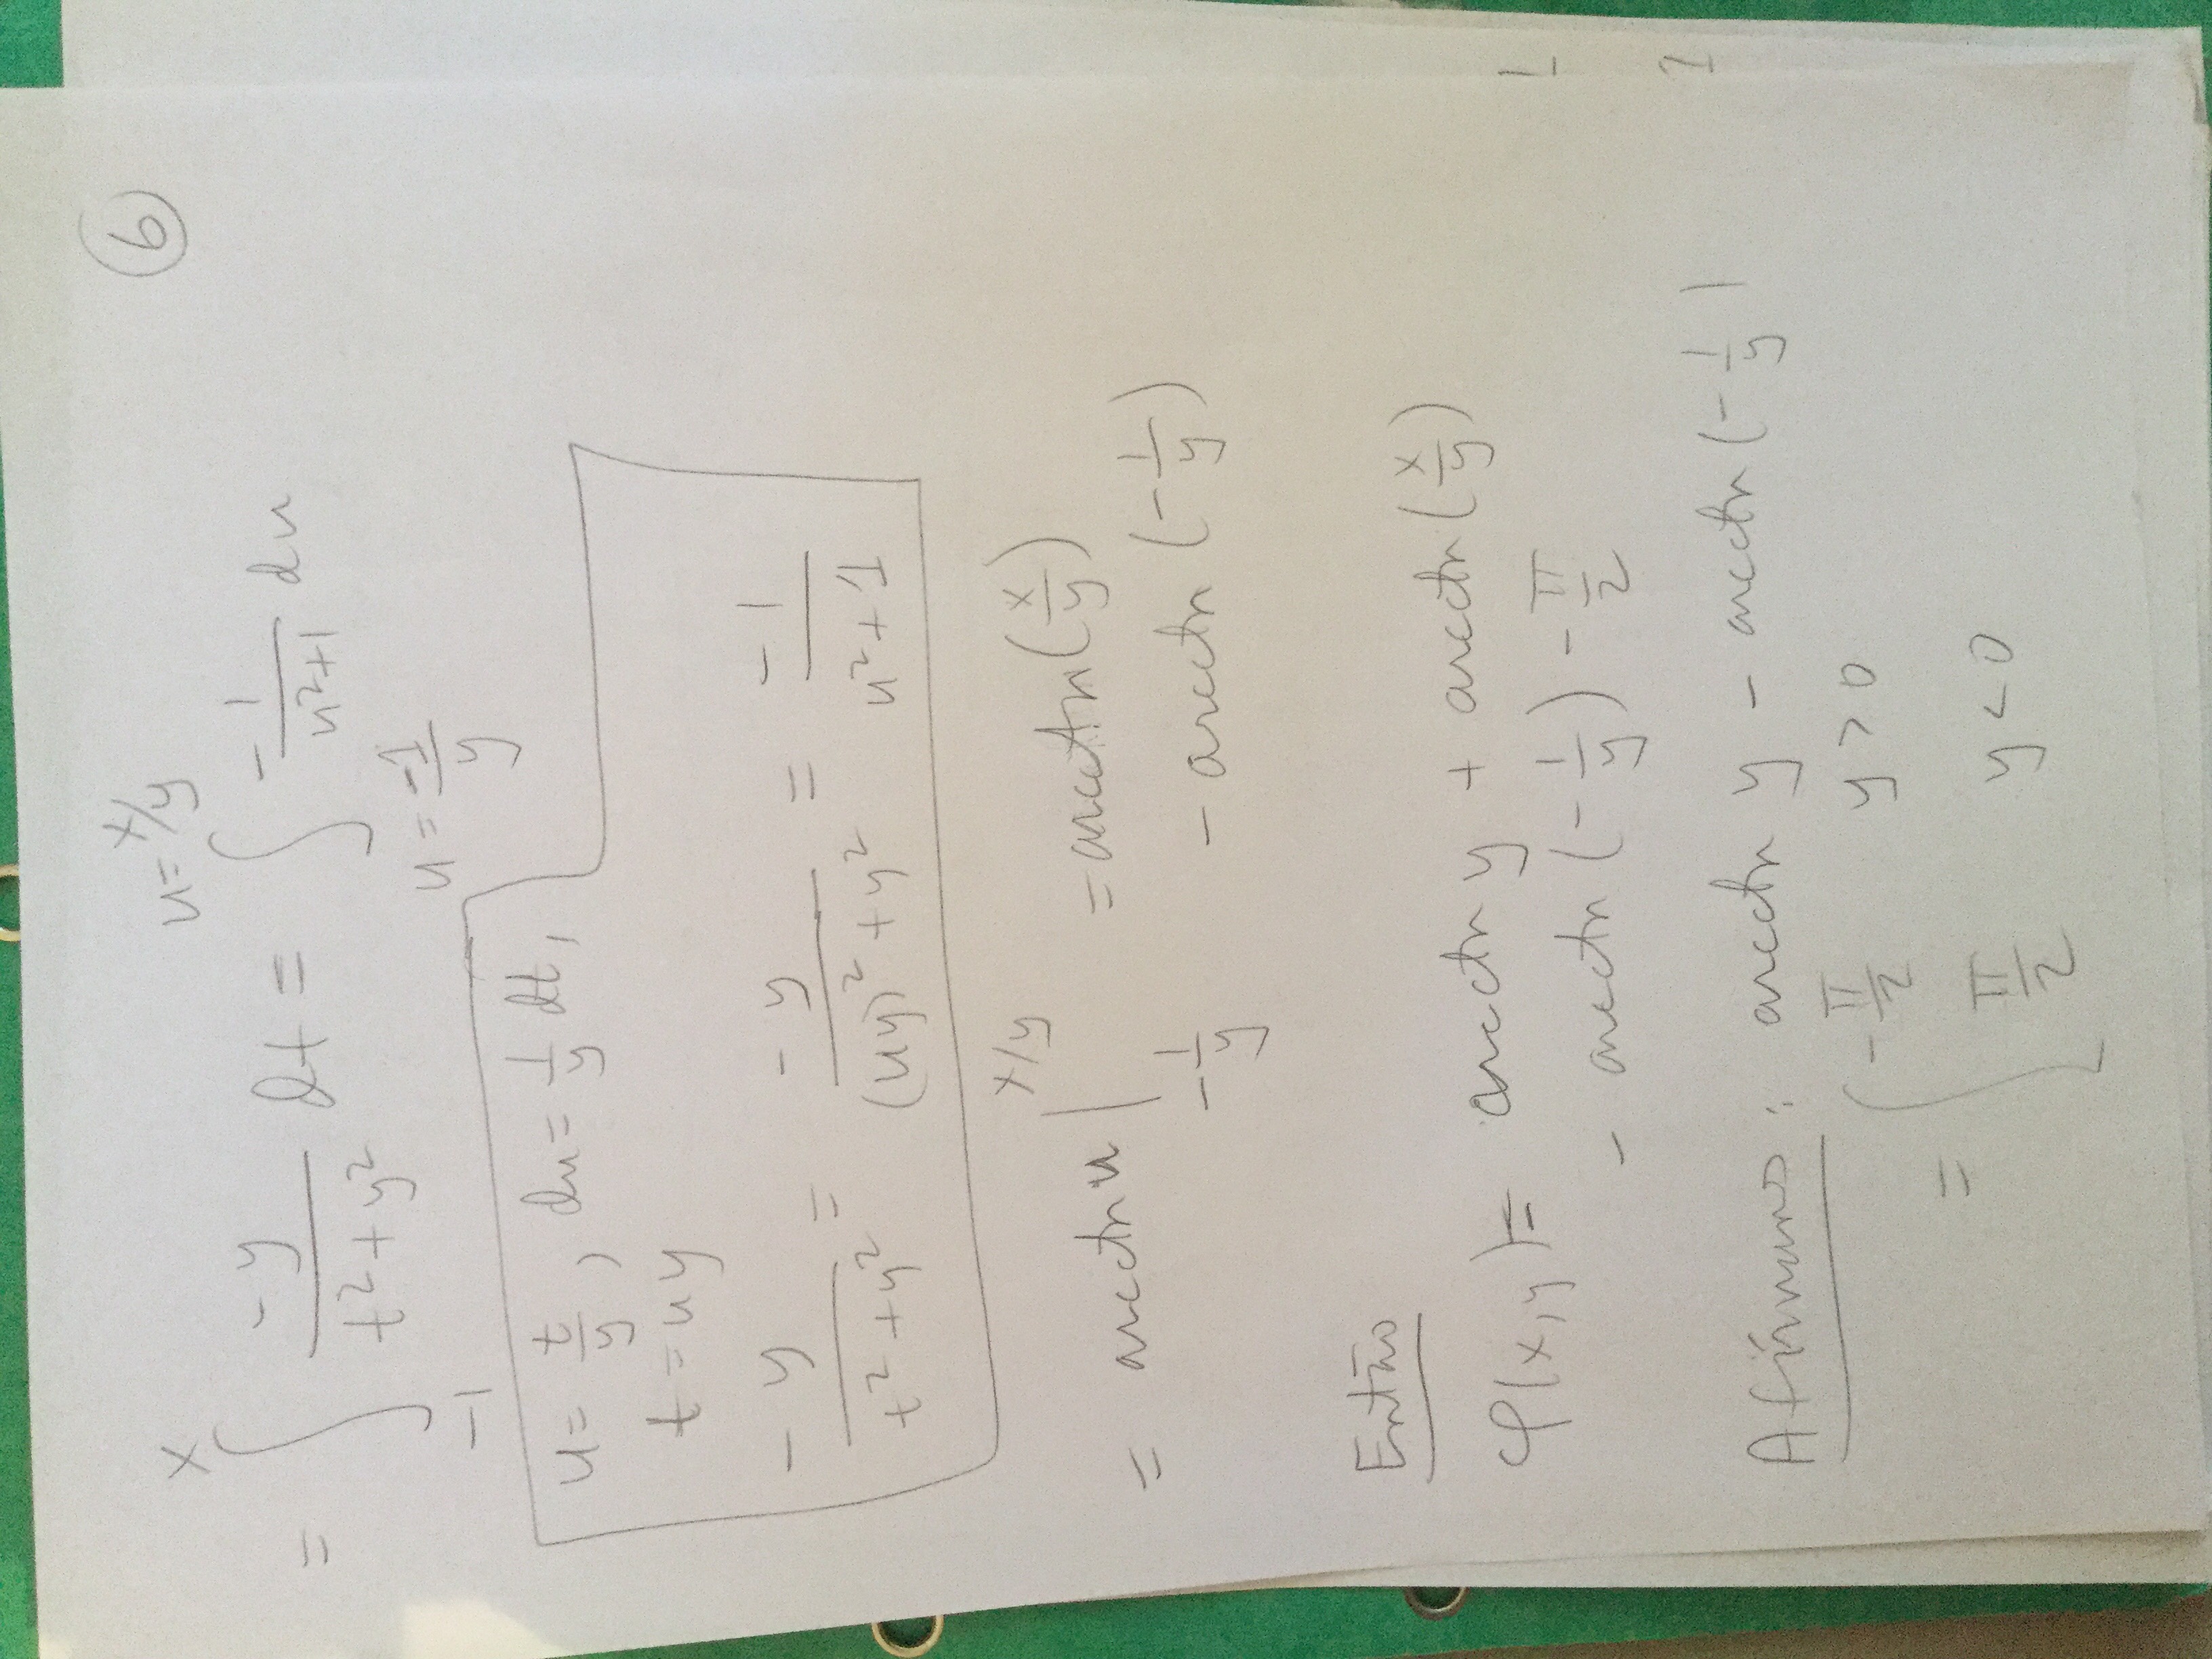 ⑥
= ∫_{-1}^{x} -y/(t²+y²) dt = ∫_{u=-1/y}^{u=x/y} -1/(u²+1) du
u = t/y, du = 1/y dt,
t = uy
-y/(t²+y²) = -y/((uy)²+y²) = -1/(u²+1)
= arctn u |_{-1/y}^{x/y} = arctn(x/y)
- arctn(-1/y)
Então
φ(x,y) = arctn y + arctn(x/y)
- arctn(-1/y) - π/2
Afirmamos: arctn y - arctn(-1/y)
= { -π/2 y > 0
π/2 y < 0